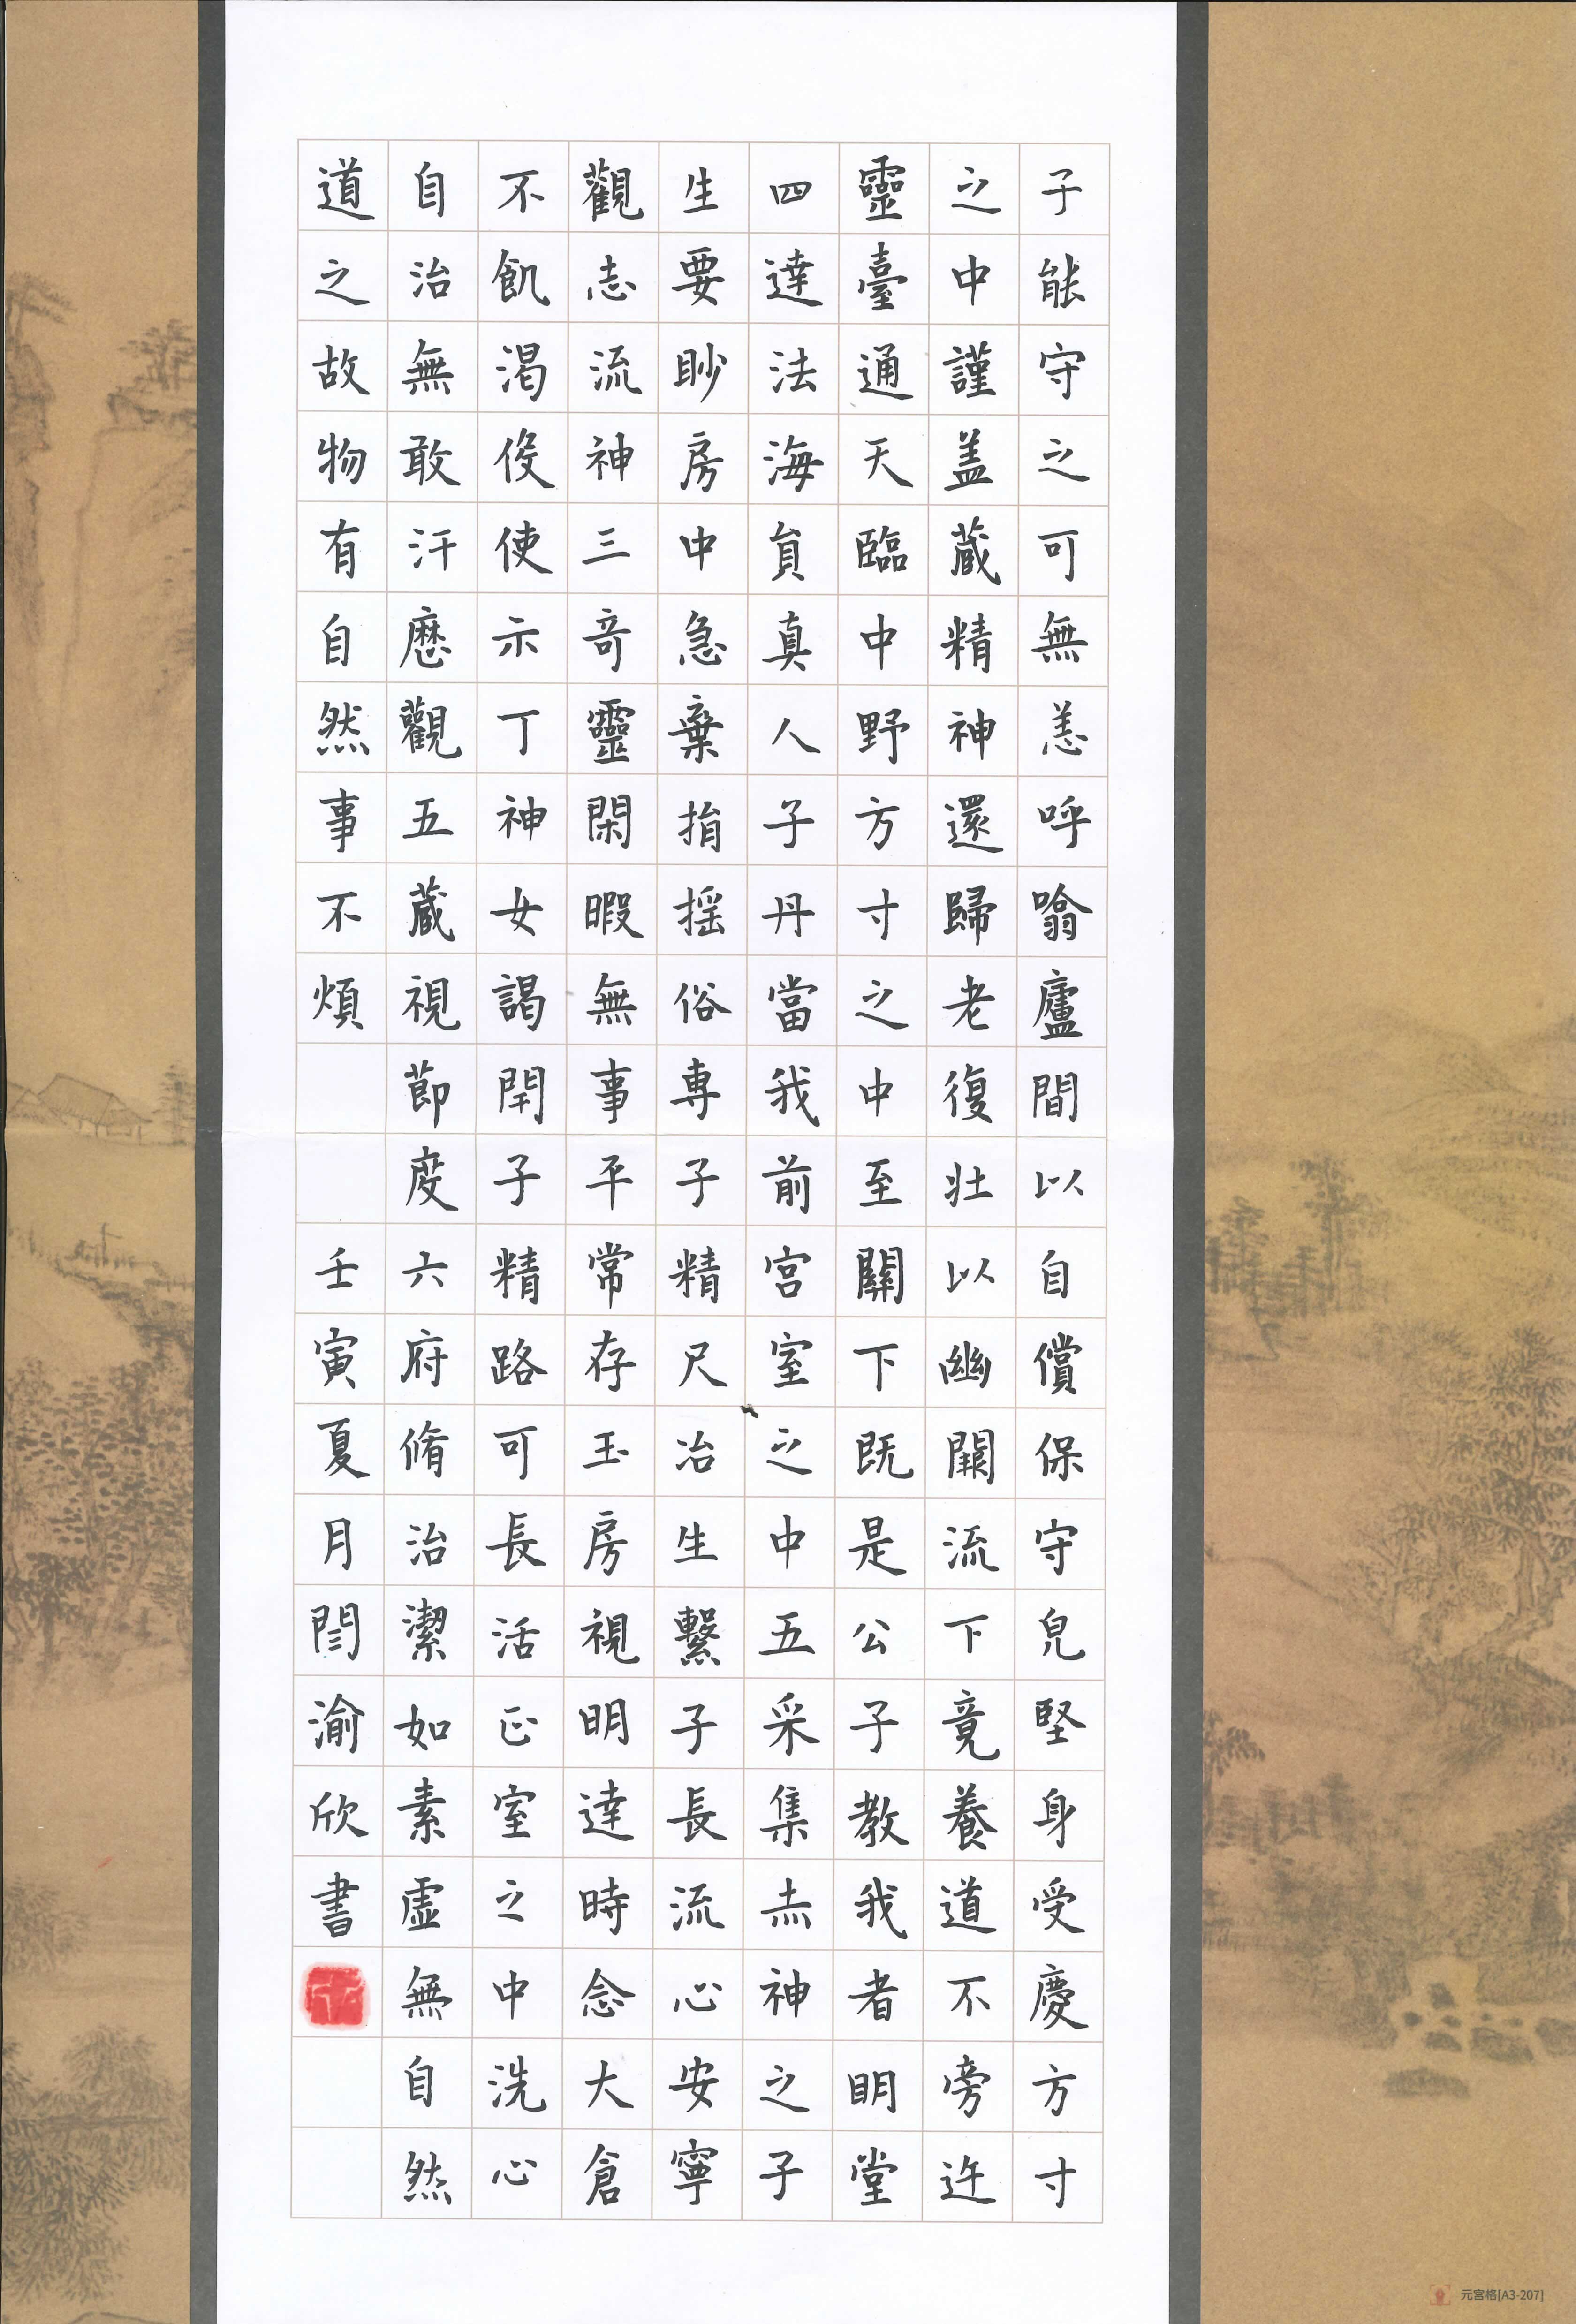 子能守之可無恙呼噏廬間以自償保守皃堅身受慶方寸
之中謹盖蔵精神還歸老復壯以幽闕流下竟養道不旁迕
靈臺通天臨中野方寸之中至關下既是公子教我者明堂
四達法海貟真人子丹當我前宮室之中五采集赤神之子
生要眇房中急棄捐揺俗専子精尺冶生繫子長流心安寧
觀志流神三竒靈閑暇無事平常存玉房視明達時念大倉
不飢渴伇使示丁神女謁閇子精路可長活正室之中洗心
自治無敢汗歷觀五蔵視節度六府脩治潔如素虛無自然
道之故物有自然事不煩
壬寅夏月閆渝欣書
元宫格[A3-207]